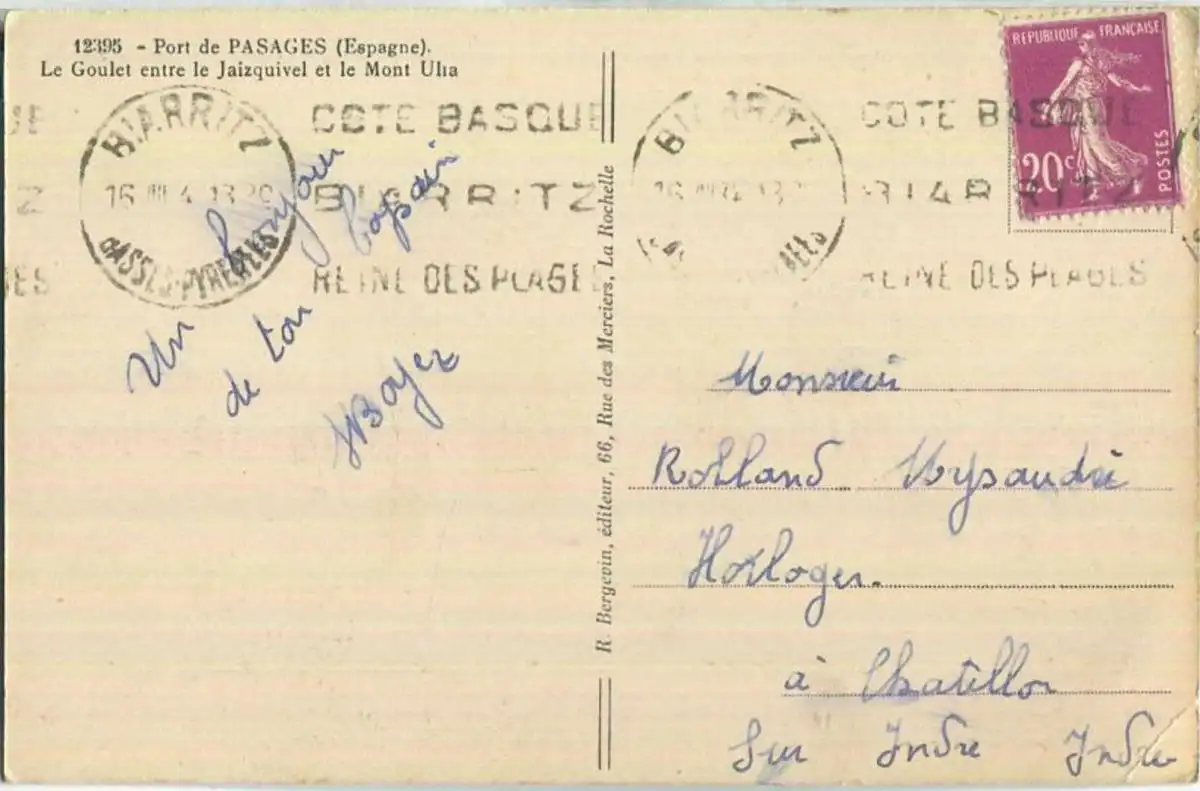 12395 - Port de PASAGES (Espagne).
Le Goulet entre le Jaïzquivel et le Mont Ulia
BIARRITZ
16 13
BASSES-PYRENEES
COTE BASQUE
BIARRITZ
REINE DES PLAGES
BIARRITZ
COTE BASQUE
BIARRITZ
REINE DES PLAGES
REPUBLIQUE FRANÇAISE
20c
POSTES
Un bonjour
de ton copain
Boyer
R. Bergevin, éditeur, 66, Rue des Merciers, La Rochelle
Monsieur
Rolland
Horloger.
à Chatillon
Sur Indre Indre